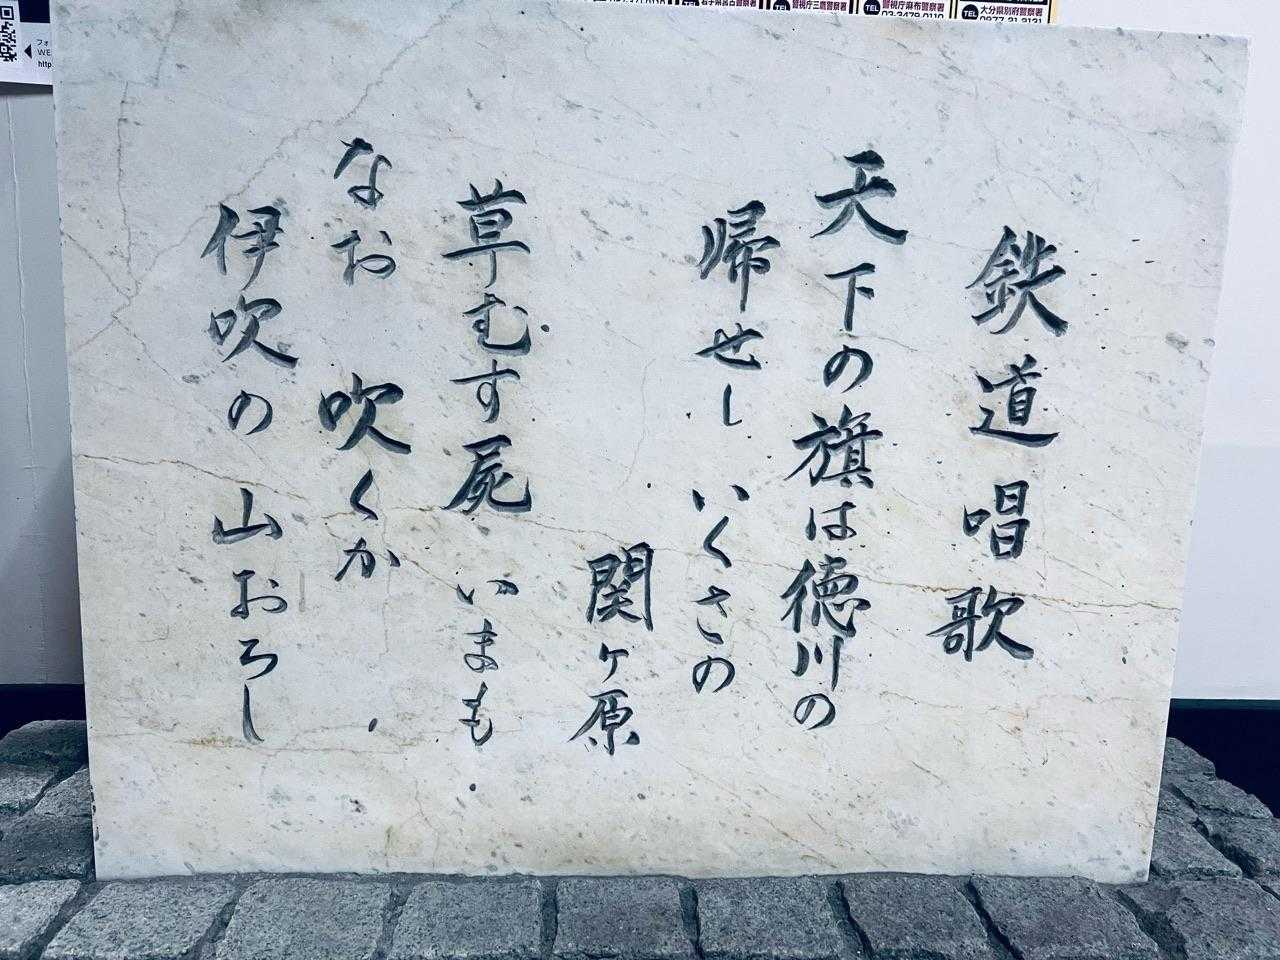 鉄道唱歌
天下の旗は徳川の
帰せしいくさの
関ヶ原
草むす屍 いまも
なお 吹くか
伊吹の 山おろし
フォ
WE
http
岩手県宮古警察署
警視庁三鷹警察署
TEL 警視庁麻布警察署
03-3479-0110
TEL 大分県別府警察署
0977-21-2131